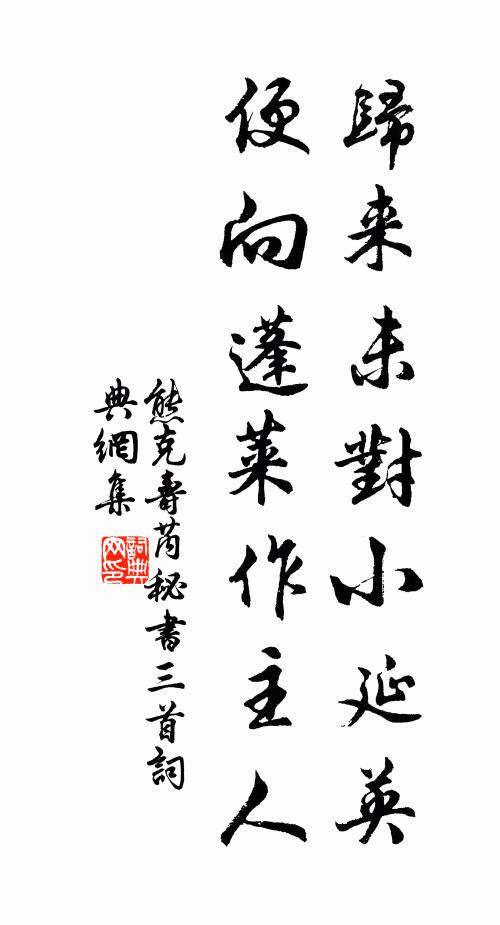 歸来未對小延英
便向蓬萊作主人
熊克壽芮秘書三首詞
典網集
詞典
网印